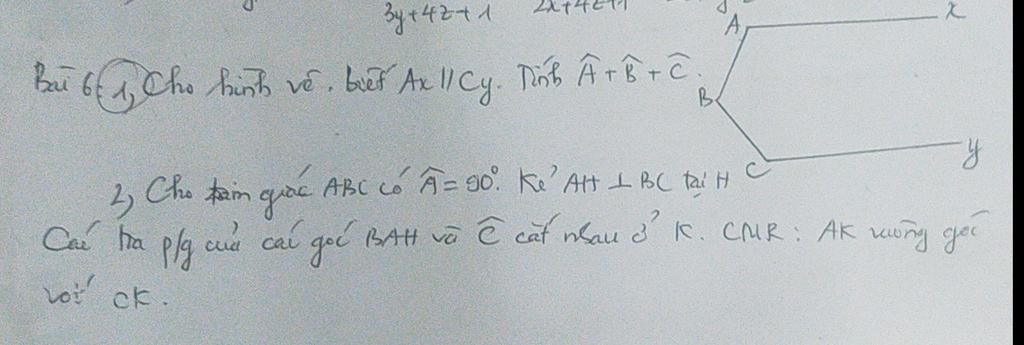 3y+4z+1 2x+4z+1
A x
Bài 6: 1, Cho hình vẽ. biết Ax // Cy. Tính Â + B̂ + Ĉ.
B
C y
2, Cho tam giác ABC có Â = 90°. Kẻ AH ⊥ BC tại H
Các tia p/g của các góc BAH và Ĉ cắt nhau ở K. CMR: AK vuông góc
với CK.